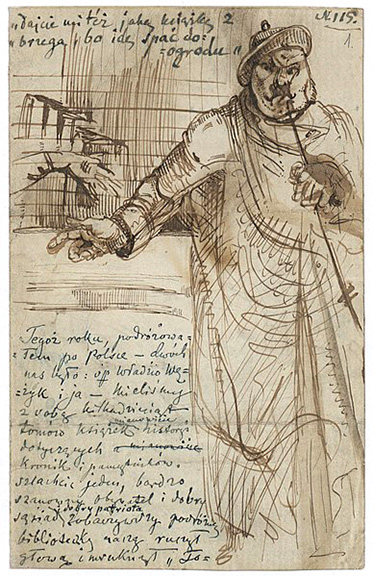 „Dajcie mi też jaką książkę z
„brzega, bo idę spać do:
=ogrodu"
N. 115.
1.
Tegoż roku, podróżowa=
łem po Polsce – dwóch
nas było: śp Władzio Wę=
żyk i ja – Mieliśmy
z sobą kilkadziesiąt
tomów książek historji
mianowicie
dotyczących a mianowicie
kronik i pamiętników.
szlachcic jeden, bardzo
szanowny obywatel i dobry
i dobry patriota
sąsiad zobaczywszy podróżną
biblioteczkę naszą ruszył
głową i mruknął „To=